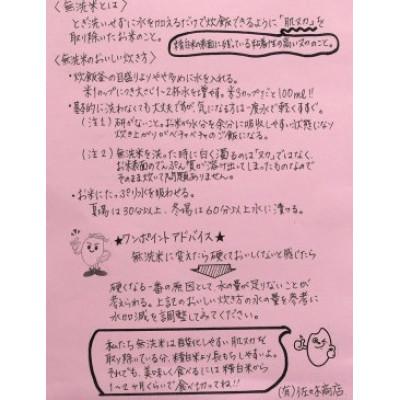 〈無洗米とは〉
とぎ洗いせずに水を加えるだけで炊飯できるように「肌ヌカ」を
取り除いたお米のこと。
精白米の表面に残っている粘着性の高いヌカのこと。
〈無洗米のおいしい炊き方〉
・炊飯釜の目盛りよりやや多めに水を入れる。
米1カップにつき大さじ1〜2杯水を増やす。米3カップだと100ml!!
・基本的に洗わなくても大丈夫ですが、気になる方は一度水で軽くすすぐ。
(注1)研がないこと。お米が水分を余分に吸収しやすい状態になり
炊き上がりがベチャベチャのご飯になる。
(注2)無洗米を洗った時に白く濁るのは「ヌカ」ではなく、
お米表面のでんぷん質が溶け出てしまったものなので
そのまま炊いて問題ありません。
・お米にたっぷり水を吸わせる。
夏場は30分以上、冬場は60分以上水に漬ける。
★ワンポイントアドバイス★
無洗米に変えたら硬くておいしくないと感じたら
硬くなる一番の原因として、水の量が足りないことが
考えられる。上記のおいしい炊き方の水の量を参考に
水加減を調整してみてください。
私たち無洗米は酸化しやすい肌ヌカを
取り除いている分、精白米より長もちしやすいよ。
それでも、美味しく食べるには精白から
1〜2ヶ月くらいで食べ切ってね!!
(有)佐々木商店